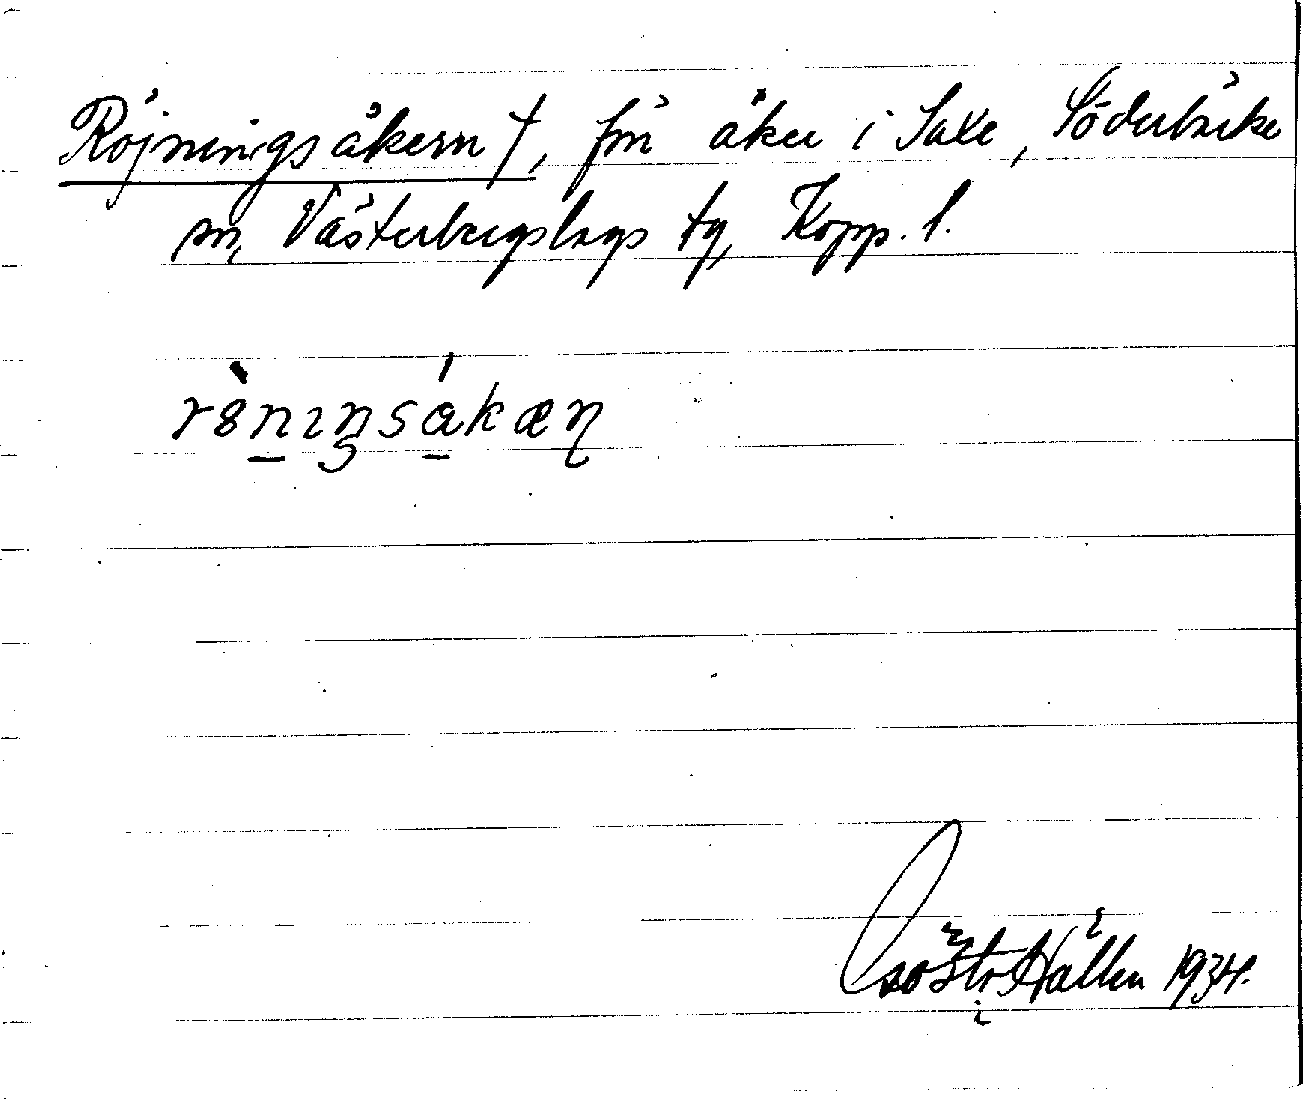 Röjningsåkern †, fin åker i Saxe, Söderbärke
sn, Västerbergslags tg, Kopp. l.
rö̀nıŋsákæn
Gösta Hallén 1934.